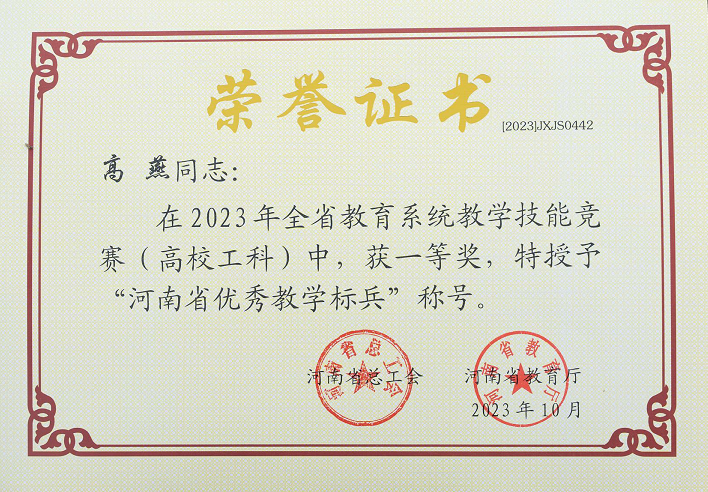 荣誉证书
[2023]JXJS0442
高 燕同志：
在2023年全省教育系统教学技能竞
赛（高校工科）中，获一等奖，特授予
“河南省优秀教学标兵”称号。
河南省总工会
河南省教育厅
河南省总工会 河南省教育厅
2023年10月